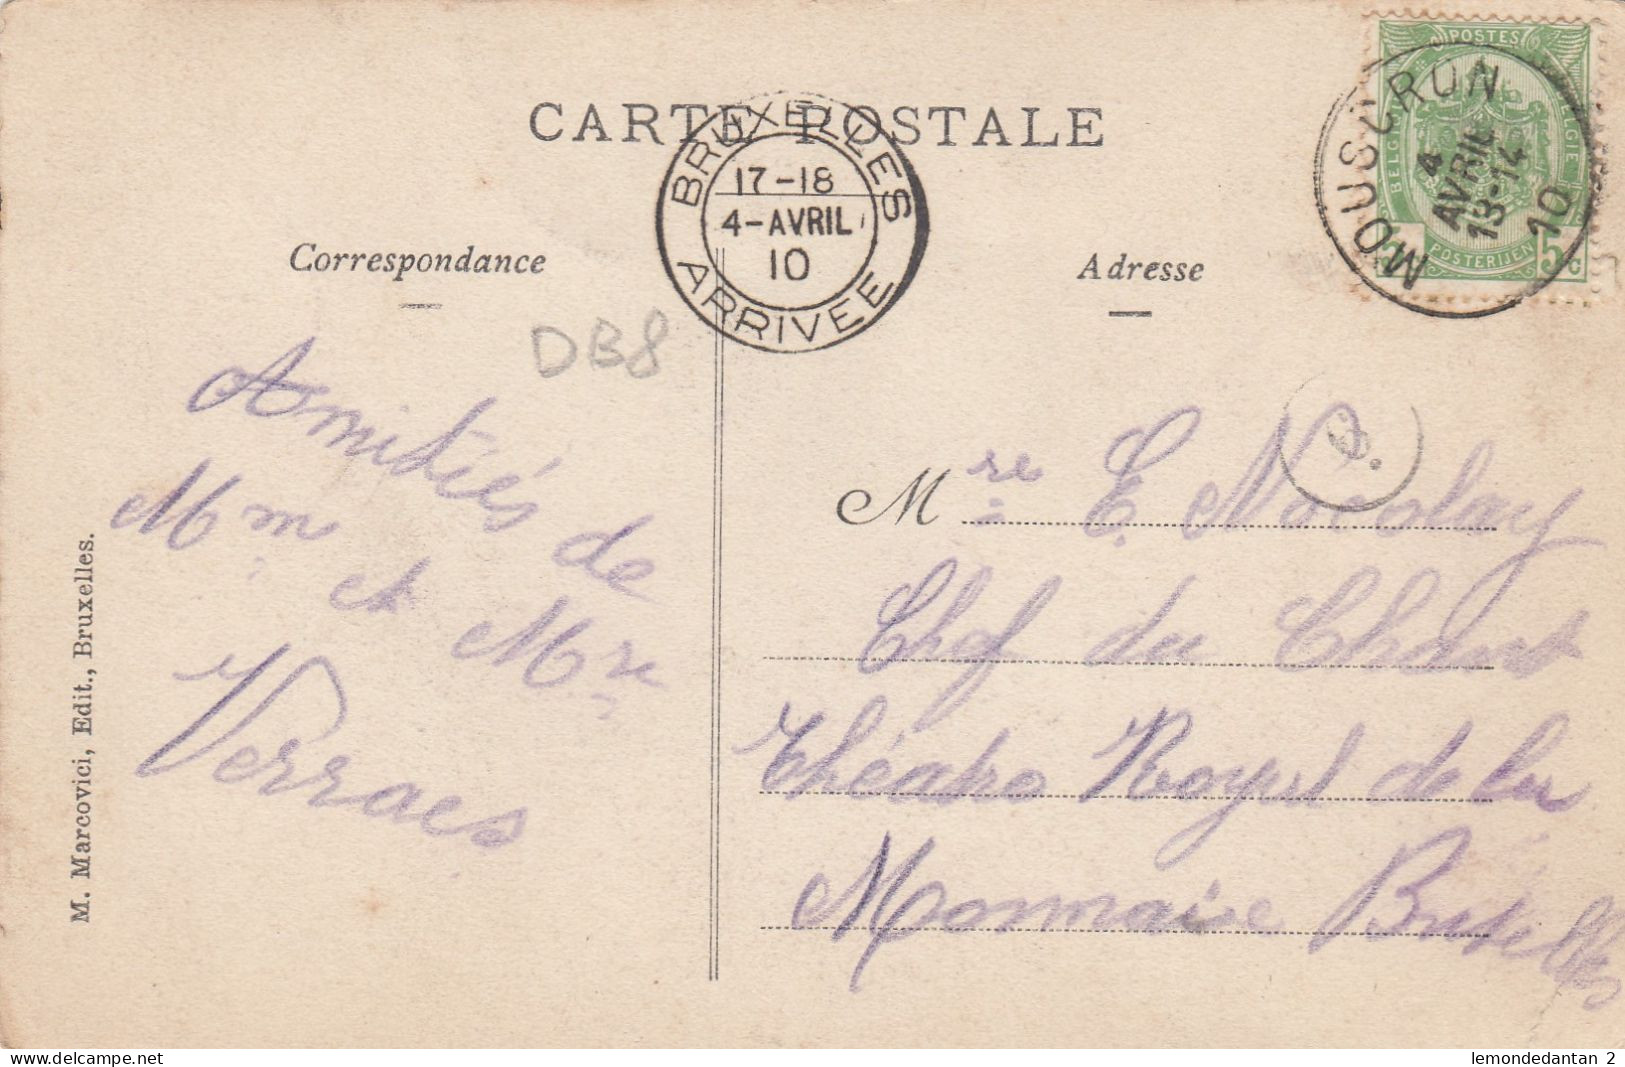 CARTE POSTALE
BRUXELLES
17-18
4-AVRIL
10
ARRIVEE
MOUSCRON
4
AVRIL
13-14
10
POSTES
BELGIQUE
BELGIE
POSTERIJEN
5c
Correspondance
Adresse
DB8
Amitiés de
Mm et Mre
Verraes
Mre E. Nicolay
Chef du Chant
Théatre Royal de la
Monnaie Bruxelles
M. Marcovici, Edit., Bruxelles.
lemondedantan 2